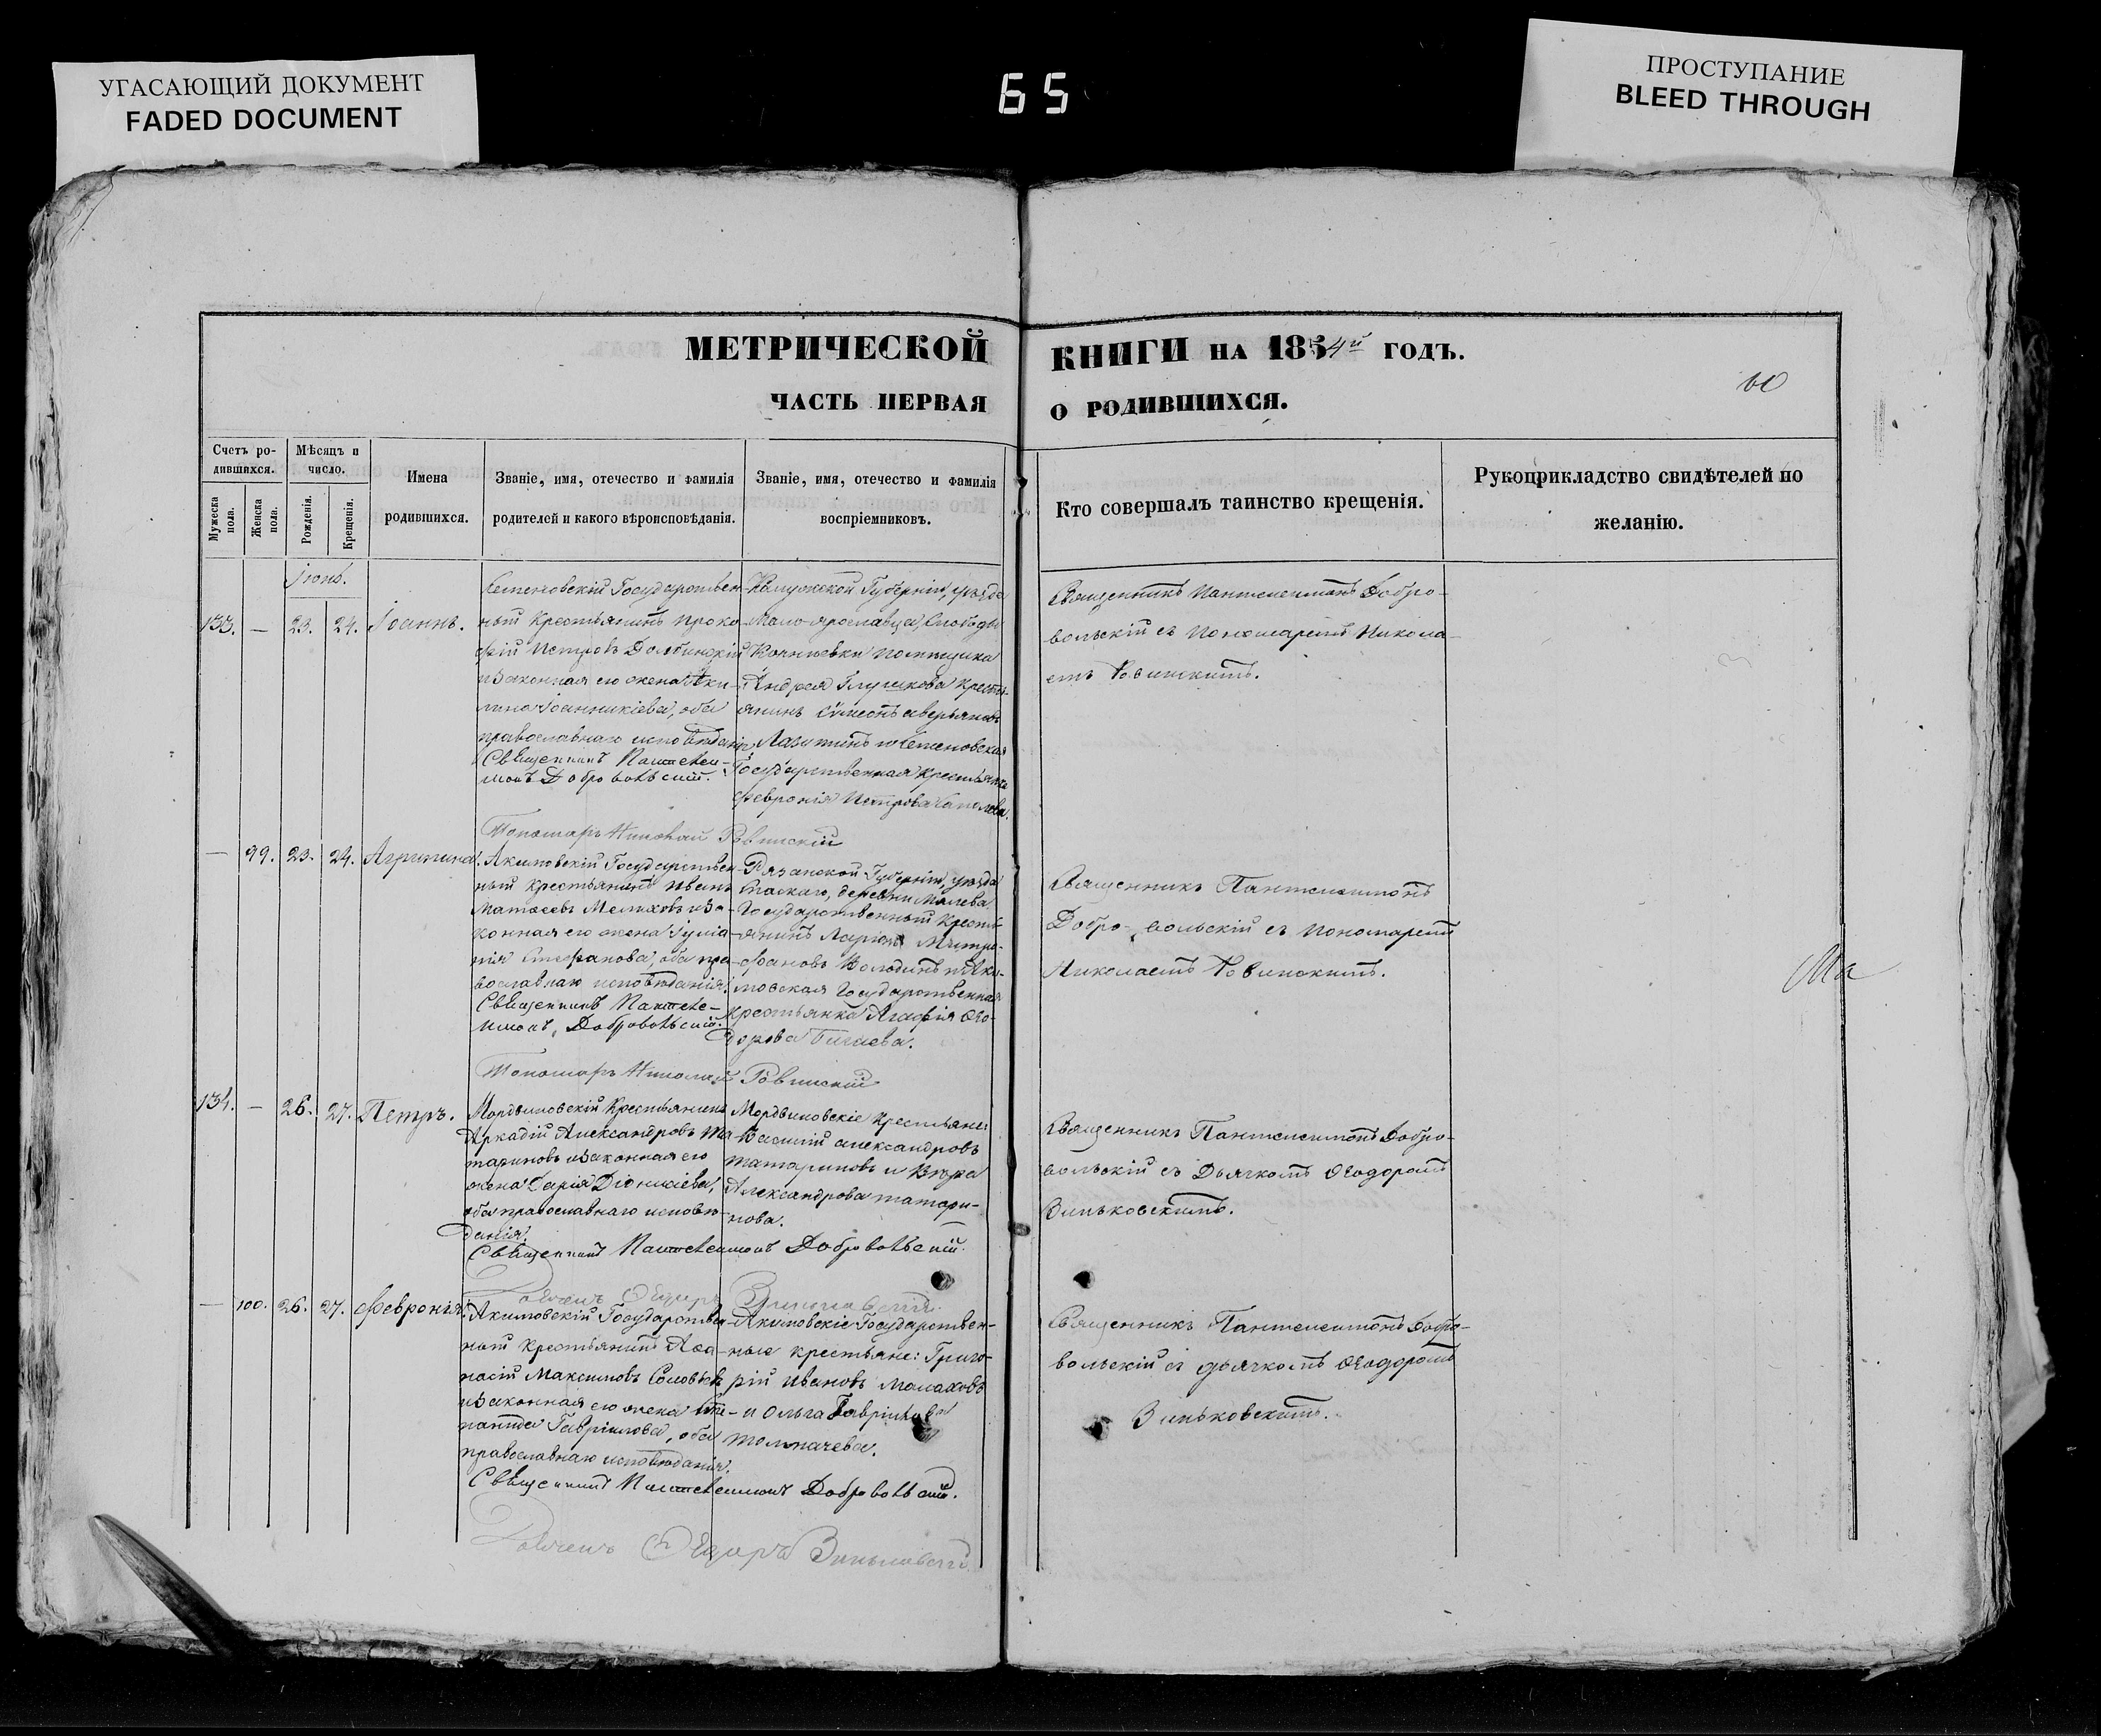 УГАСАЮЩИЙ ДОКУМЕНТ
FADED DOCUMENT
65
ПРОСТУПАНИЕ
BLEED THROUGH
МЕТРИЧЕСКОЙ КНИГИ НА 1854й ГОДЪ.
60
ЧАСТЬ ПЕРВАЯ О РОДИВШИХСЯ.
Счетъ ро-
дившихся.
Мужеска
пола.
Женска
пола.
Мѣсяцъ и
число.
Рожденія.
Крещенія.
Имена
родившихся.
Званіе, имя, отечество и фамилія
родителей и какого вѣроисповѣданія.
Званіе, имя, отечество и фамилія
воспріемниковъ.
Кто совершалъ таинство крещенія.
Рукоприкладство свидѣтелей по
желанію.
Іюнь.
133. — 23. 24. Іоаннъ.
Семеновскій Государствен-
ный Крестьянинъ Проко-
фій Петровъ Долбинскій
и законная его жена Аки-
лина Іоанникіева, оба
православнаго исповѣданія
Священникъ Пантелеи-
монъ Добровольскій.
Калужской Губерніи, уѣзда
Мало-ярославца, Слободы
помѣщика
Андрея Глушкова кресть-
янинъ Сѵмеонъ Аверьяновъ
и Семеновская
Государственная Крестьянка
Февронія Петрова
Священникъ Пантелеимонъ Добро-
вольскій съ Пономаремъ Никола-
емъ Ровинскимъ.
Пономарь Николай Ровинскій
— 99. 23. 24. Агрипина.
Акимовскій Государствен-
ный крестьянинъ Иванъ
Матѳеевъ Мелиховъ и за-
конная его жена Іуліа-
нія Стефанова, оба пра-
вославнаго исповѣданія.
Священникъ Пантеле-
имонъ Добровольскій.
Рязанской Губерніи, уѣзда
Спаскаго, деревни Малева
Государственный Кресть-
янинъ Ларіонъ Митро-
фановъ Володинъ и Аки-
мовская Государственная
крестьянка Агафія Ѳео-
дорова Бигаева.
Священникъ Пантелеимонъ
Добро-вольскій съ пономаремъ
Николаемъ Ровинскимъ.
Пономарь Николай Ровинскій
134. — 26. 27. Петръ.
Мордвиновскій Крестьянинъ
Аркадій Александровъ Та-
тариновъ и законная его
жена Дарія Діонисіева,
оба православнаго исповѣ-
данія.
Мордвиновскіе Крестьяне:
Василій Александровъ
Татариновъ и Вѣра
Александрова Татари-
нова.
Священникъ Пантелеимонъ Добро-
вольскій съ Дьячкомъ Ѳеодоромъ
Зиньковскимъ.
Священникъ Пантелеимонъ Добровольскій.
Дьячекъ Ѳедоръ Зиньковскій.
— 100. 26. 27. Февронія.
Акимовскій Государствен-
ный Крестьянинъ Аѳа-
насій Максимовъ Соловьевъ
и законная его жена Сте-
панида Гавріилова, оба
православнаго исповѣданія.
Акимовскіе Государствен-
ные крестьяне: Григо-
рій Ивановъ Малаховъ
и Ольга Гавріилова
Толмачева.
Священникъ Пантелеимонъ Добро-
вольскій съ дьячкомъ Ѳеодоромъ
Зиньковскимъ.
Священникъ Пантелеимонъ Добровольскій.
Дьячекъ Ѳедоръ Зиньковскій.